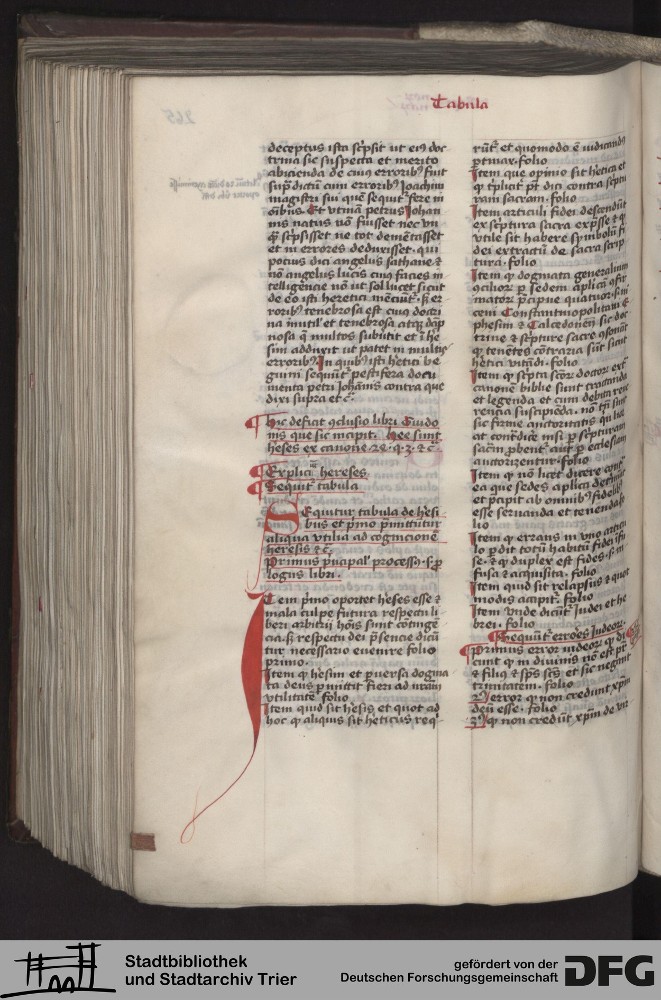 Tabula
deceptus ista scpsit ut eius doc
trina sic suspecta et merito
abicienda de cuius erroribus fuit
supra dictum cum erroribus Joachim
magistri sui quem sequitur fere in
omnibus. Et utinam petrus Johan
nis natus non fuisset nec un
quam scpsisset ne tot dementasset
et in errores deduxisset. qui
pocius dici angelus sathane et
non angelus lucis cuius facies in
telligencie non ut sol lucet sicut
de eo isti heretici menciuntur. sed er
roribus tenebrosa est cuius doctri
na inutilis et tenebrosa atque damp
nosa multos subuertit et in he
sim adduxit ut patet in multis
erroribus. In quibus isti heretici be
guini sequuntur pestifera docu
menta petri Johannis contra que
dixi supra et c.
Hic deficit conclusio libri Guido
nis que sic incipit. Hee sunt
heses ex canone 24. q. 3. et c.
Expliciunt hereses
Sequitur tabula
Sequitur tabula de hesi
bus et primo premittuntur
aliqua utilia ad cognicionem
heresis et c.
Primus principalis processus. s. pro
logus libri.
Item primo oportet heses esse et
mala culpe futura respectu li
beri arbitrii hominis sunt contingen
cia. sed respectu dei presencie dicun
tur necessario euenire folio
primo.
Item quod hesim et peruersa dogma
ta deus permittit fieri ad nostram
utilitatem folio
Item quid sit hesis et quot ad
hoc quod aliquis sit hereticus req
runtur et quomodo est iudicandus
pertinax. folio
Item que opinio sit heretica et
quod tripliciter potest dici contra scriptu
ram sacram. folio
Item articuli fidei descendunt
ex scriptura sacra expresse et quod
utile sit habere symbolum fi
dei extractum de sacra scrip
tura. folio
Item quod dogmata generalium
conciliorum per sedem apostolicam confir
matorum precipue quatuor. s. ni
cem Constantinopolitani E
phesini et Calcedonensis sic doc
trine et scripture sacre consonant
quod tenentes contraria sunt sicut
heretici vitandi. folio
Item quod scripta sanctorum doctorum extra
canonem biblie sunt tractanda
et legenda et cum debita reue
rencia suscipienda. non tamen sunt
sic firme auctoritatis
at contradicere nisi per scripturam
sacram probentur aut per ecclesiam
auctorizentur. folio
Item quod non licet dicere contra
ea que sedes apostolica definit
et precipit ab omnibus fidelibus
esse seruanda et tenenda fo
lio
Item quod errans in uno articu
lo perdit totum habitum fidei
se. et quod duplex est fides. s. in
fusa et acquisita. folio
Item quid sit relapsus et quot
modis accipitur. folio
Item unde dicuntur Judei et he
brei. folio
Sequuntur errores Judeorum.
Primus error iudeorum quod di
cunt quod in diuinis non est pater
et filius et spiritus sanctus et sic negant
trinitatem. folio
2us error quod non credunt xpm
deum esse. folio
3us quod non credunt xpm de vir
Stadtbibliothek
und Stadtarchiv Trier
gefördert von der
Deutschen Forschungsgemeinschaft
DFG